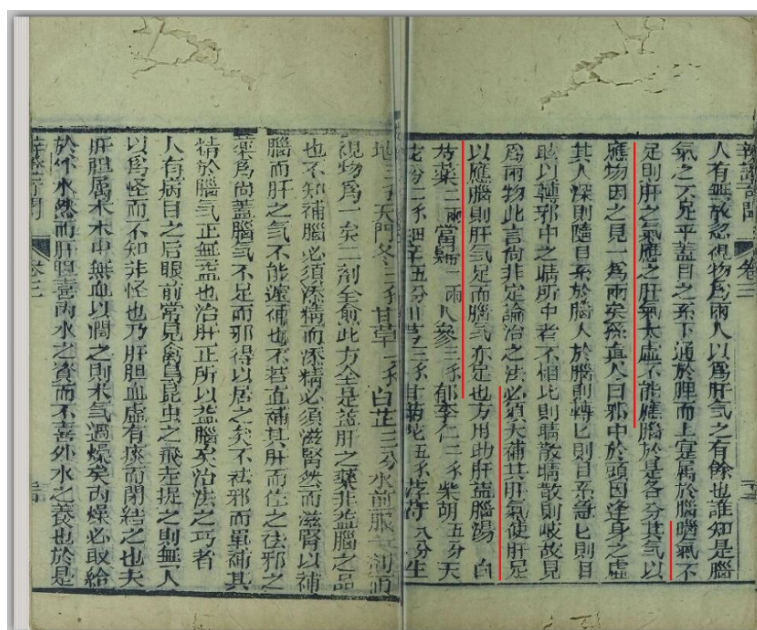 辨證奇聞 卷三
人有無故忽視物爲兩人以爲肝气之有餘也誰知是腦
氣之不足乎蓋目之系下通於脾而上寔属於腦腦氣不
足則肝之氣應之肝氣大虛不能應腦於是各分其气以
應物因之見一爲兩矣孫真人曰邪中於頭因逢身之虛
其人深則隨目系於腦人於腦則轉匕則目系急匕則目
眩以轉邪中之睛所中者不相比則睛散睛散則岐故見
爲兩物此言尚非定論治之法必須大補其肝氣使肝足
以應腦則肝气足而腦气亦足也方用助肝益腦湯 白
芍藥二兩當歸一兩人參三錢郁李仁二錢柴胡五分天
花粉二錢細辛五分川芎三錢甘菊花五錢茯苓八分生
地三錢天門冬三錢甘草一錢白芷三分水煎服二劑而
視物爲一矣二剤全愈此方全是益肝之藥非益腦之品
也不知補腦必須添精而添精必須滋腎然而滋腎以補
腦而肝之气不能遽補也不若直補其肝而佐之祛邪之
藥爲尚蓋腦气不足而邪得以居之矣不祛邪而單補其
精於腦气正無益也治肝正所以益腦矣治法之巧者
人有病目之后眼前常見禽鳥昆虫之飛走捉之則無人
以爲怪而不知非怪也乃肝胆血虛有痰而閉結之也夫
肝胆属木木中無血以潤之則木气過燥矣内燥必取給
於外水然而肝胆喜内水之資而不喜外水之養也於是
辨證奇聞 卷三